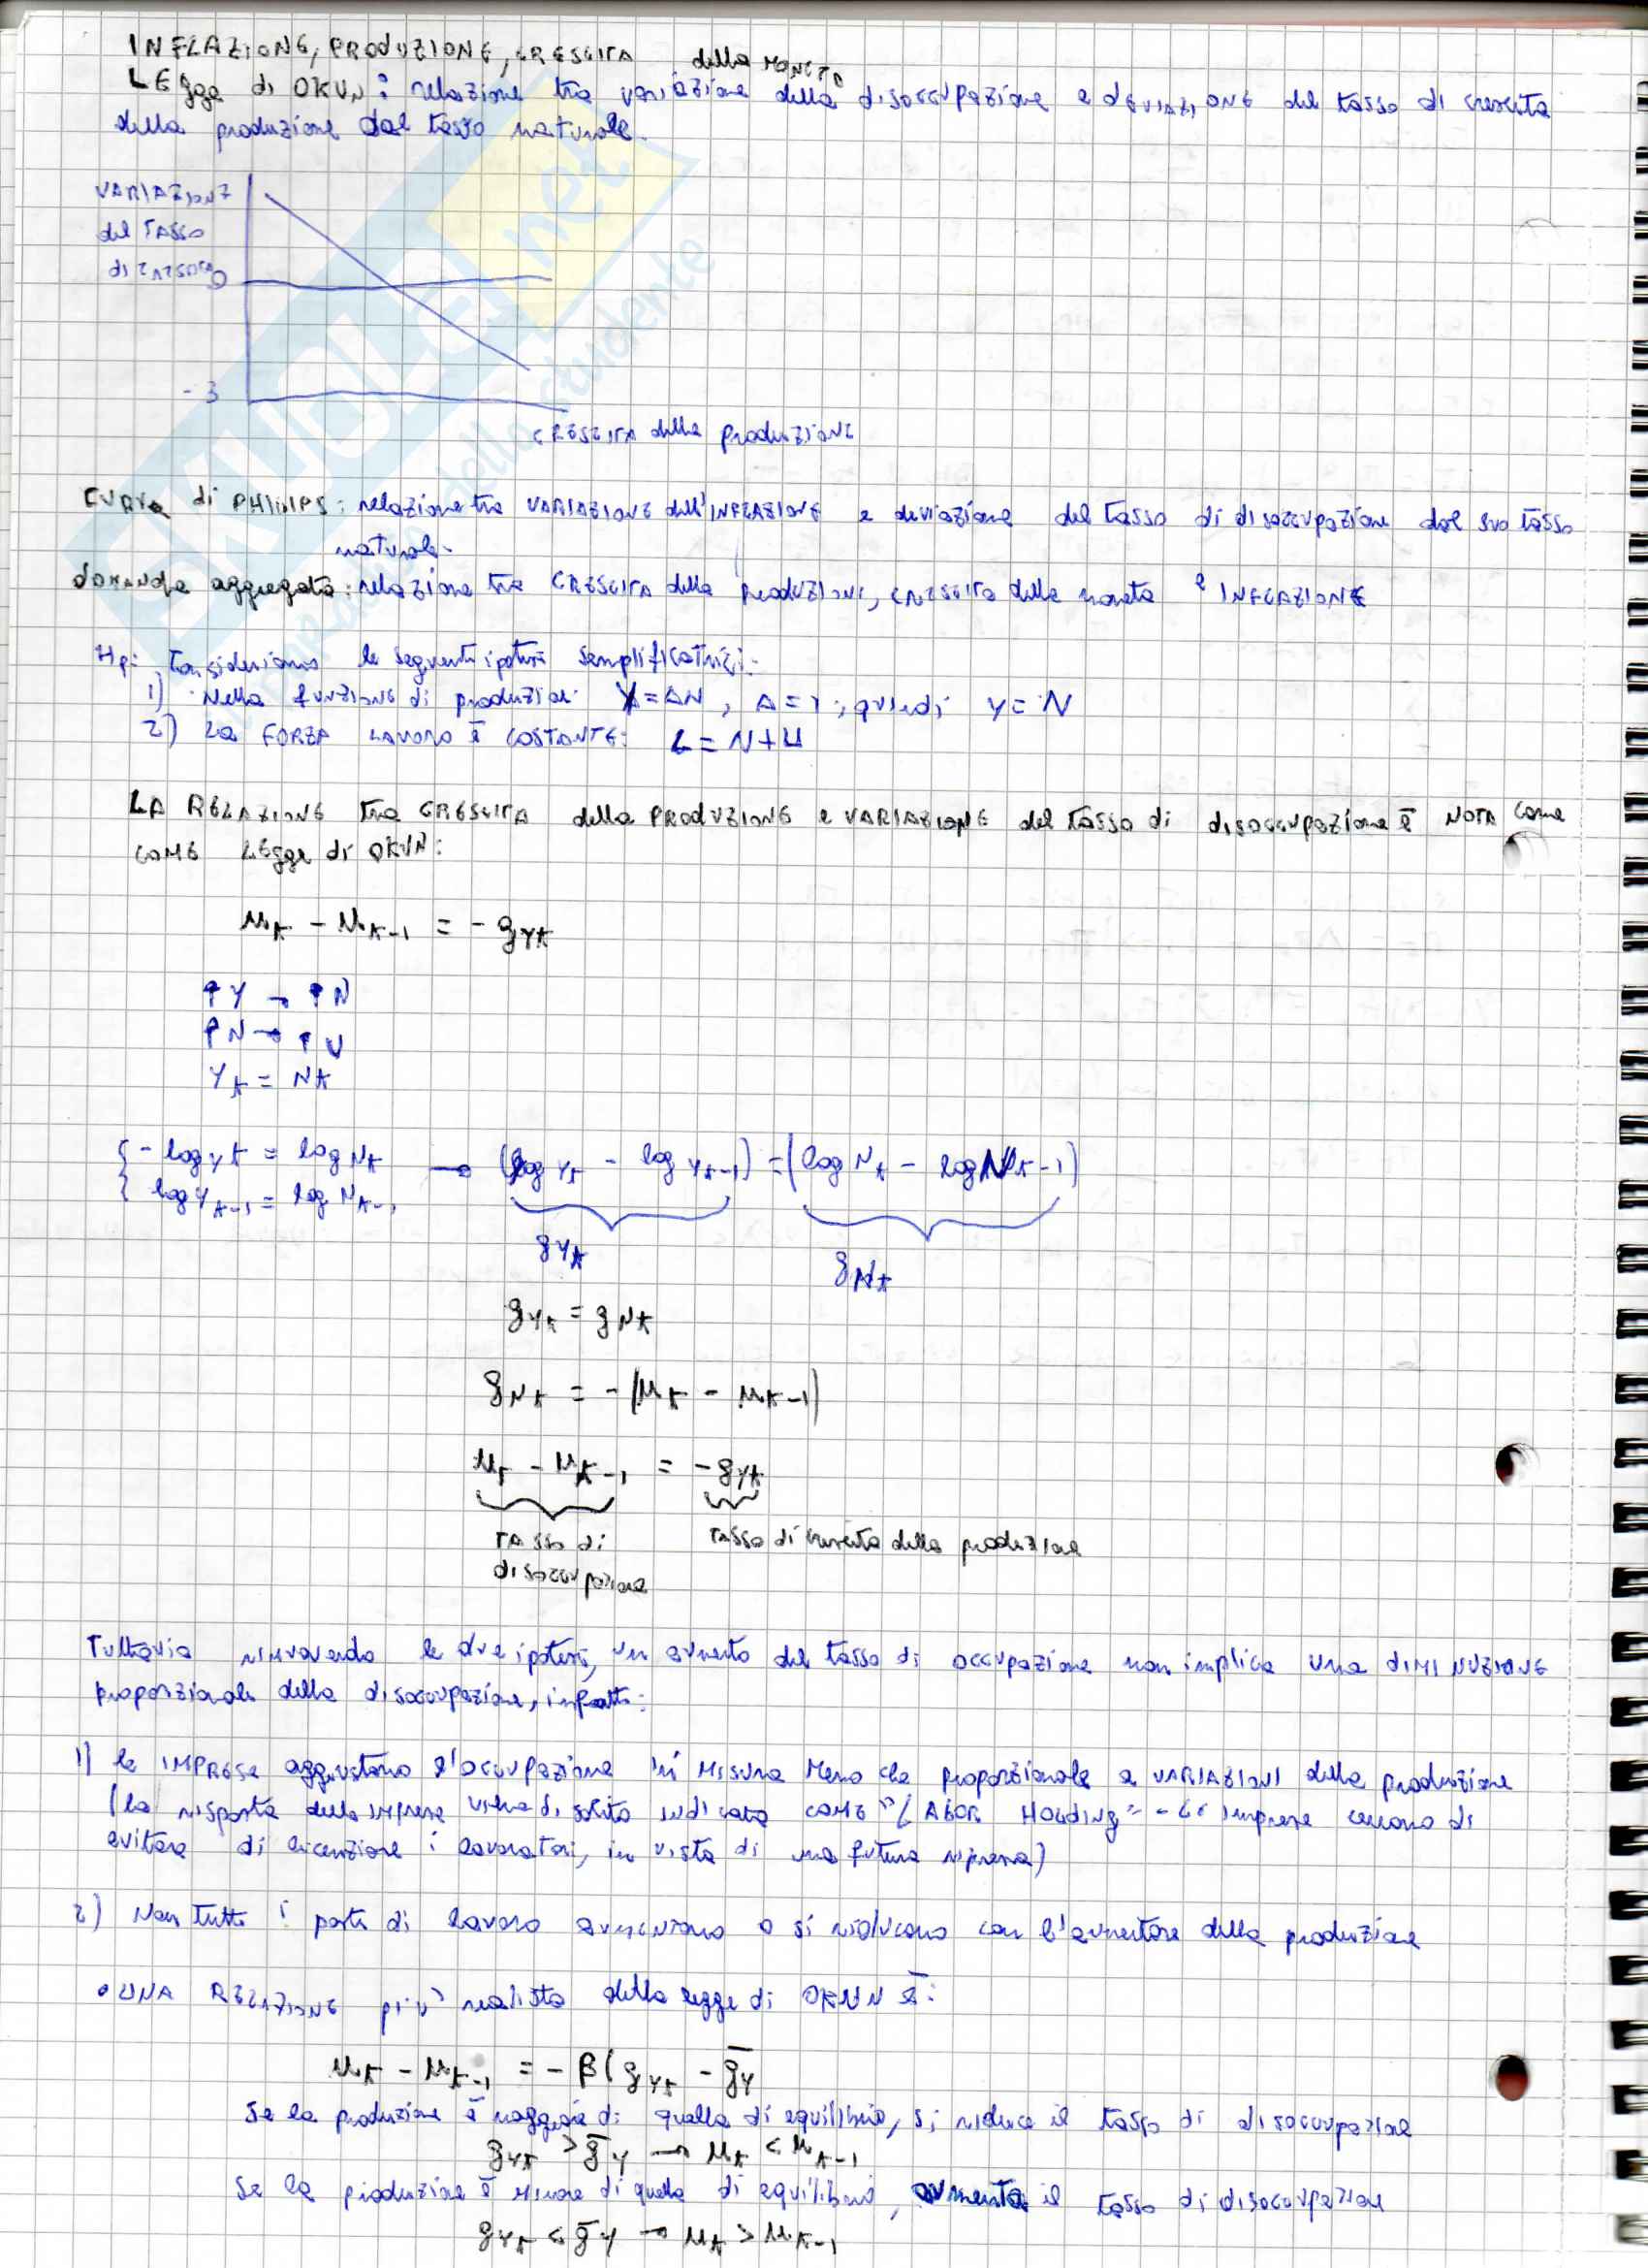 INFLAZIONE, PRODUZIONE, CRESCITA della MONETA
LEgge di OKUN: relazione tra variazione della disoccupazione e dEVIAZIONE del tasso di crescita
della produzione dal tasso naturale.
VARIAZIONE
del TASSO
di
0
- 3
CRESCITA della produzione
CURVA di PHILLIPS: relazione tra VARIAZIONE dell'INFLAZIONE e deviazione del tasso di disoccupazione dal suo tasso
naturale.
domanda aggregata: relazione tra CRESCITA della PRODUZIONE, CRESCITA della moneta e INFLAZIONE
Hp: Consideriamo le seguenti ipotesi semplificatrici:
1) Nella funzione di produzione Y=AN, A=1, quindi Y=N
2) La FORZA LAVORO è COSTANTE: L=N+U
LA RELAZIONE tra CRESCITA della PRODUZIONE e VARIAZIONE del tasso di disoccupazione è NOTA come
COME LEgge di OKUN:
ut - ut-1 = - gyt
↑Y → ↑N
↑N → ↑U
Yt = Nt
{ - log yt = log Nt → (log yt - log yt-1) = (log Nt - log Nt-1)
{ log yt-1 = log Nt-1
gyt
gNt
gyt = gNt
gNt = -(ut - ut-1)
ut - ut-1 = -gyt
TASSO di tasso di crescita della produzione
disoccupazione
Tuttavia rimuovendo le due ipotesi, un aumento del tasso di occupazione non implica una dIMINUZIONE
proporzionale della disoccupazione, infatti:
1) le IMPRESE aggiustano l'occupazione in misura meno che proporzionale a VARIAZIONI della produzione
(la risposta delle imprese viene di solito indicata COME "LAbOR HOLdINg" - Le imprese cercano di
evitare di licenziare i lavoratori, in vista di una futura ripresa)
2) Non tutti i posti di lavoro aumentano o si riducono con l'aumentare della produzione
• UNA RELAZIONE più realista della legge di OKUN è:
ut - ut-1 = - β(gyt - ḡy
Se la produzione è maggiore di quella di equilibrio, si riduce il tasso di disoccupazione
gyt > ḡy → ut < ut-1
Se la produzione è minore di quella di equilibrio, aumenta il tasso di disoccupazione
gyt < ḡy → ut > ut-1
SKUOLA.net
della studente